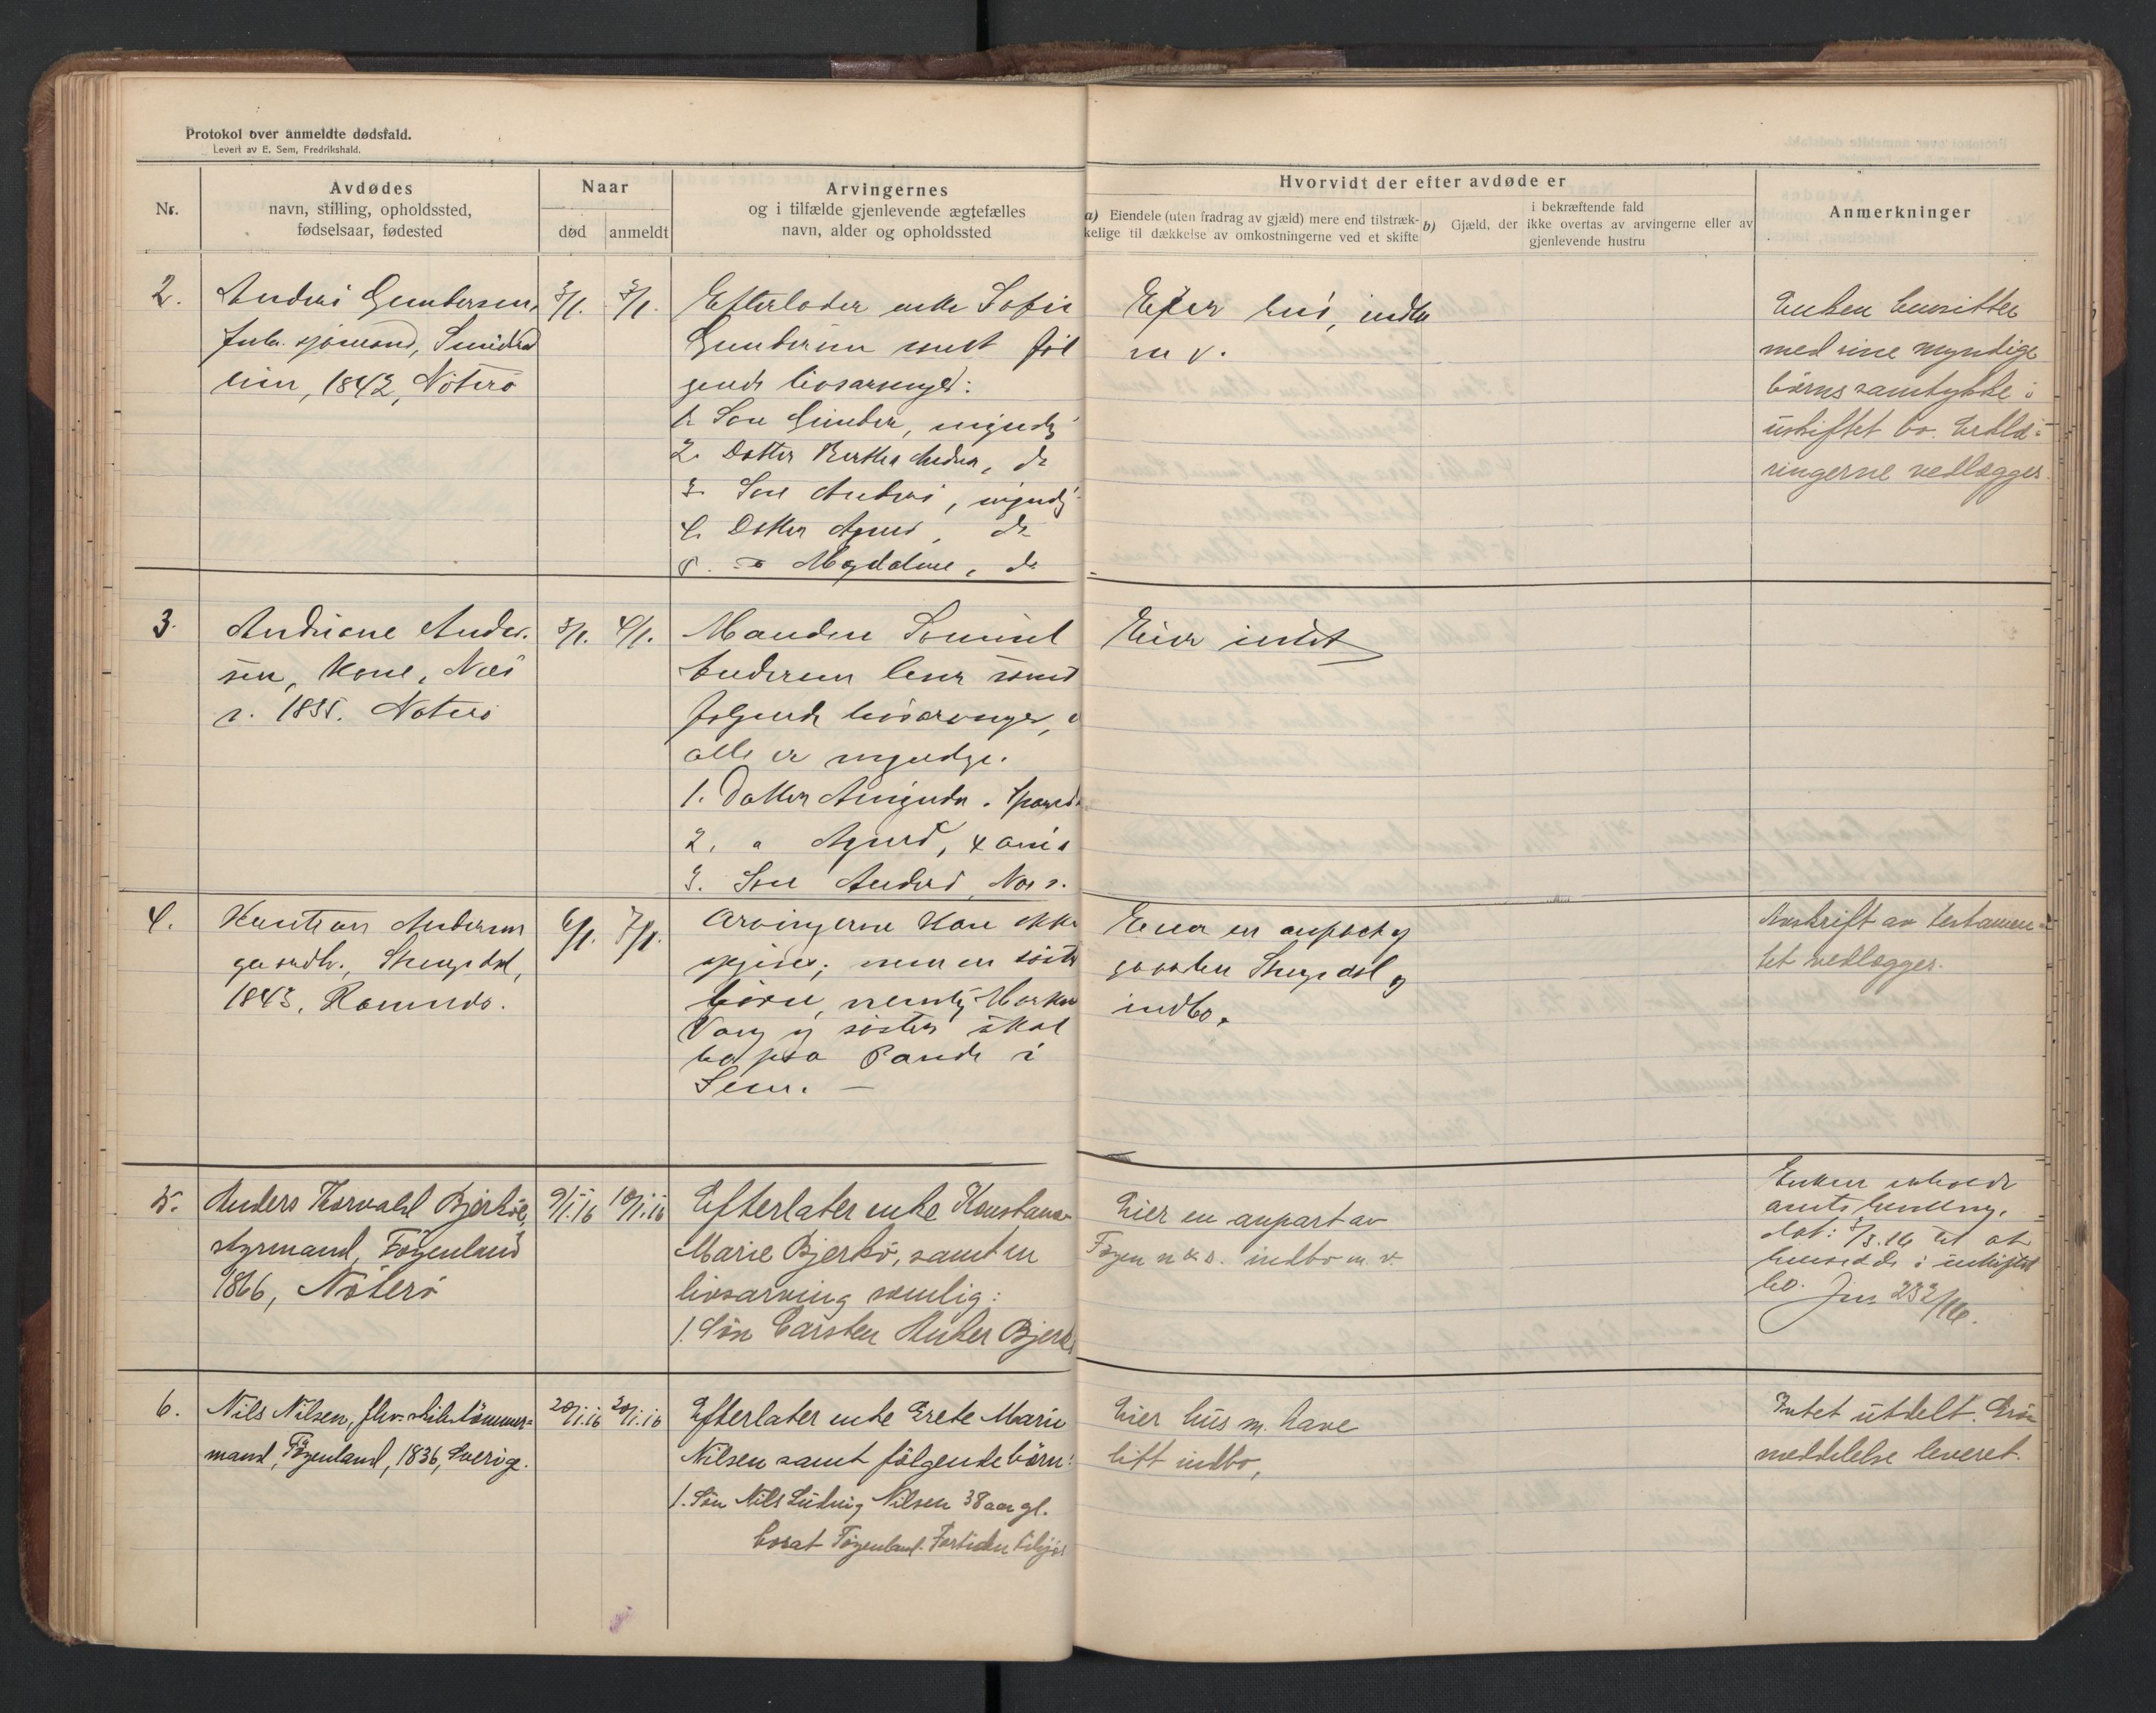 Protokol over anmeldte dødsfald.
Levert av E. Sem, Fredrikshald.
Nr.
Avdødes
navn, stilling, opholdssted,
fødselsaar, fødested
Naar
død
anmeldt
Arvingernes
og i tilfælde gjenlevende ægtefælles
navn, alder og opholdssted
Hvorvidt der efter avdøde er
a) Eiendele (uten fradrag av gjæld) mere end tilstræk-
kelige til dækkelse av omkostningerne ved et skifte
b) Gjæld, der
i bekræftende fald
ikke overtas av arvingerne eller av
gjenlevende hustru
Anmerkninger
2.
Anders Gundersen,
sjømand,
1842, Nøterø
3/1.
3/1.
Efterlader enke Sofie
Gundersen samt føl
gende livsarvinger:
1. Søn Gunder, myndig
2. Datter Berthea Andrea, do
3. Søn Anders, myndig
4. Datter Agnes, do
5. do Magdalene, do
Eier hus, indbo
m v.
Enken hensitter
med sine myndige
børns samtykke i
uskiftet bo. Erklæ-
ringerne vedlægges.
3.
Andriane Ander-
sen, Kone, Nes
1835. Nøterø
3/1.
4/1.
Manden
Andersen lever samt
følgende livsarvinger,
alle er myndige.
1. Datter
2. " Agnes,
3. Søn Anders, Nes
Eier intet
4.
Andersen
gaardbr.,
1843, Ramnes.
6/1.
7/1.
Arvingerne kan ikke
opgives; men en søsters
børn, nemlig
og søster skal
bo paa i
Sem. —
Eier en anpart
gaarden og
indbo.
Avskrift av testamen-
tet vedlægges.
5.
Anders Torvald Bjerkø,
styrmand, Føyenland
1866, Nøterø
9/1.16
10/1.16
Efterlater enke Konstanse
Marie Bjerkø, samt en
livsarving nemlig:
1. Søn Carsten Anker Bjerkø
Eier en anpart av
Føyen n & s. indbo m. v.
Enken
amtsbevilling,
dat: 3/3.16 til at
hensidde i uskiftet
bo. Jnr. 232/16.
6.
Nils Nilsen, fhv. skibstømmer-
mand, Føyenland, 1836, Sverige.
20/1.16
20/1.16
Efterlater enke Grete Marie
Nilsen samt følgende børn:
1. Søn Nils Ludvig Nilsen 38 aar gl.
bosat Føyenland. Fortiden tilsjøs
Eier hus m. have
litt indbo,
Intet utdelt.
meddelelse leveret.